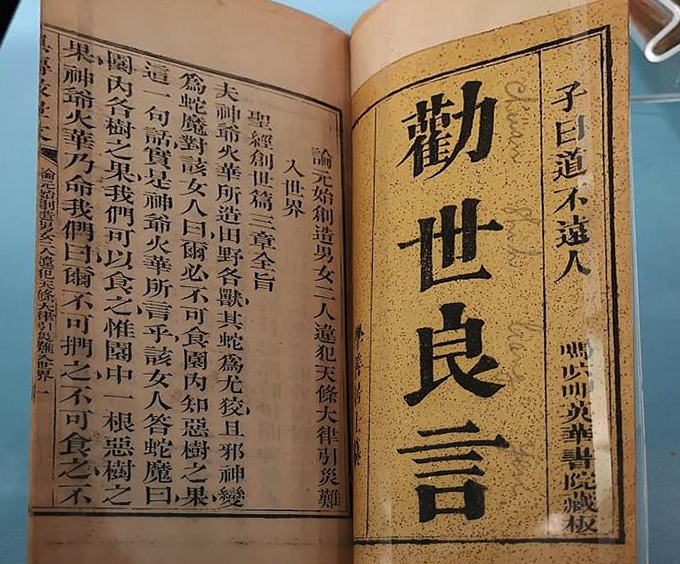 子曰道不遠人
英華書院藏板
勸世良言
論元始創造男女二人違犯天條大律引災難
入世界
聖經創世篇三章全旨
夫神爺火華所造田野各獸其蛇爲尤狡且邪神變
爲蛇魔對該女人曰爾必不可食園內知惡樹之果
這一句話實是神爺火華所言乎該女人答蛇魔曰
園內各樹之果我們可以食之惟園中一根惡樹之
果神爺火華乃命我們曰爾不可捫之不可食之不
論元始創造男女二人違犯天條大律引災難入世界 一